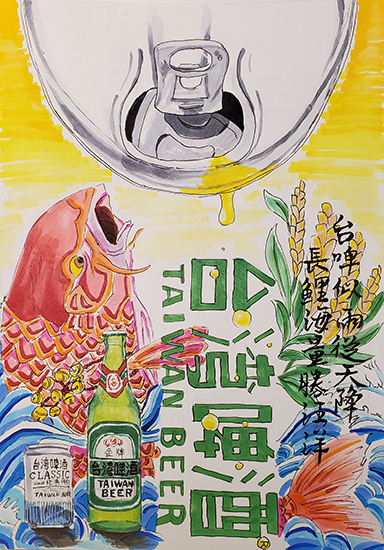 台啤似雨從天降
長鯉海量勝汪洋
台湾啤酒
TAIWAN BEER
金牌
台湾啤酒
TAIWAN
BEER
台湾啤酒
CLASSIC
TAIWAN